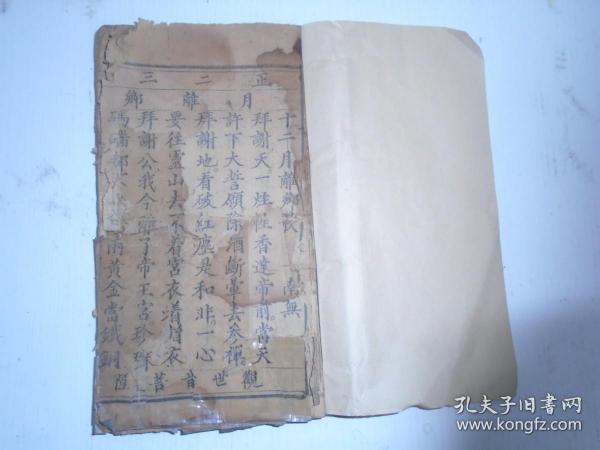 正 二 三
月 離 鄉
十二月離鄉
南無
拜謝天一炷性香達帝前當天
許下大誓願除酒斷葷去參禪
拜謝地看破紅塵是和非一心
要往靈山去不着宮衣着僧衣
拜謝公我今辭了帝王宮珍珠
瑪瑙都黃金當鐵銅
觀世音菩
孔夫子旧书网
www.kongfz.com